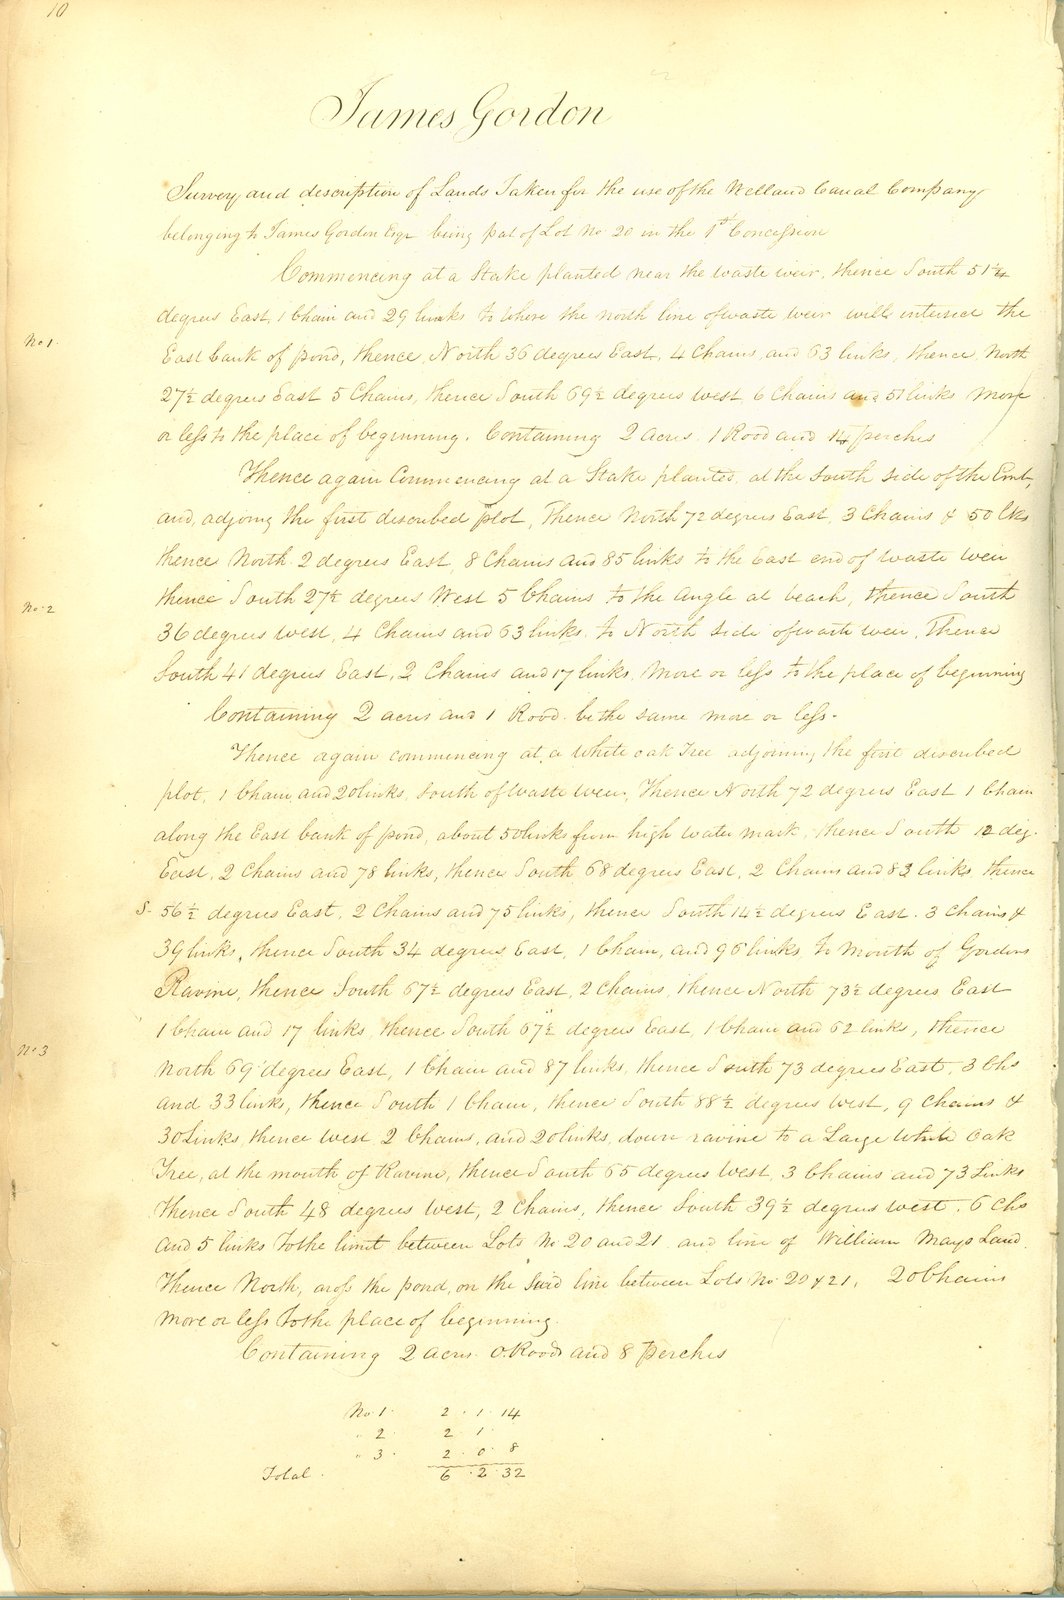 10
James Gordon
Survey and description of Lands Taken for the use of the Welland Canal Company
belonging to James Gordon Esqr being pat of Lot No 20 in the 1st Concession
Commencing at a Stake planted near the waste weir, thence South 51 1/4
degrees East, 1 Chain and 29 links to where the north line of waste weir will intersect the
No 1.
East bank of pond, thence, North 36 degrees East, 4 Chains, and 63 links, thence North
27½ degrees East 5 Chains, thence South 69½ degrees west 6 Chains and 51 links more
or less to the place of beginning. Containing 2 acres 1 Rood and 14 perches
Thence again Commencing at a Stake planted, at the South side of the Emb,
and, adjoing the first described plot, Thence North 72 degrees East, 3 Chains & 50 Lks
thence North 2 degrees East, 8 Chains and 85 links to the East end of waste weir
No. 2
thence South 27½ degrees West 5 Chains to the angle at beach, thence South
36 degrees west, 4 Chains and 63 links to North side of waste weir, Thence
South 41 degrees East, 2 Chains and 17 links, more or less to the place of beginning
Containing 2 acres and 1 Rood be the same more or less.
Thence again commencing at a White oak Tree adjoining the first described
plot, 1 Chain and 20 links, South of waste weir, Thence North 72 degrees East 1 Chain
along the East bank of pond, about 50 links from high water mark, thence South 12 deg.
East, 2 Chains and 78 links, thence South 68 degrees East, 2 Chains and 83 links thence
S. 56½ degrees East, 2 Chains and 75 links, thence South 14½ degrees East. 3 Chains &
39 links, thence South 34 degrees East, 1 Chain, and 96 links to Mouth of Gordons
Ravine, thence South 67½ degrees East, 2 Chains, thence North 73½ degrees East
1 Chain and 17 links, thence South 67½ degrees East, 1 Chain and 62 links, thence
No 3
North 69 degrees East, 1 Chain and 87 links, thence South 73 degrees East, 3 Chs
and 33 links, thence South 1 Chain, thence South 88½ degrees west, 9 Chains &
30 Links, thence west, 2 Chains, and 20 links, down ravine to a Large White Oak
Tree, at the mouth of Ravine, thence South 65 degrees West, 3 Chains and 73 Links
Thence South 48 degrees west, 2 Chains, thence South 39½ degrees west, 6 Chs
and 5 links to the limit between Lots No 20 and 21 and line of William Mays Land
Thence North, aross the pond, on the said line between Lots No. 20 & 21, 20 Chains
more or less to the place of beginning.
Containing 2 acres 0. Roods and 8 perches
No 1. 2. 1. 14
" 2. 2. 1.
" 3. 2. 0. 8
Total. 6. 2. 32